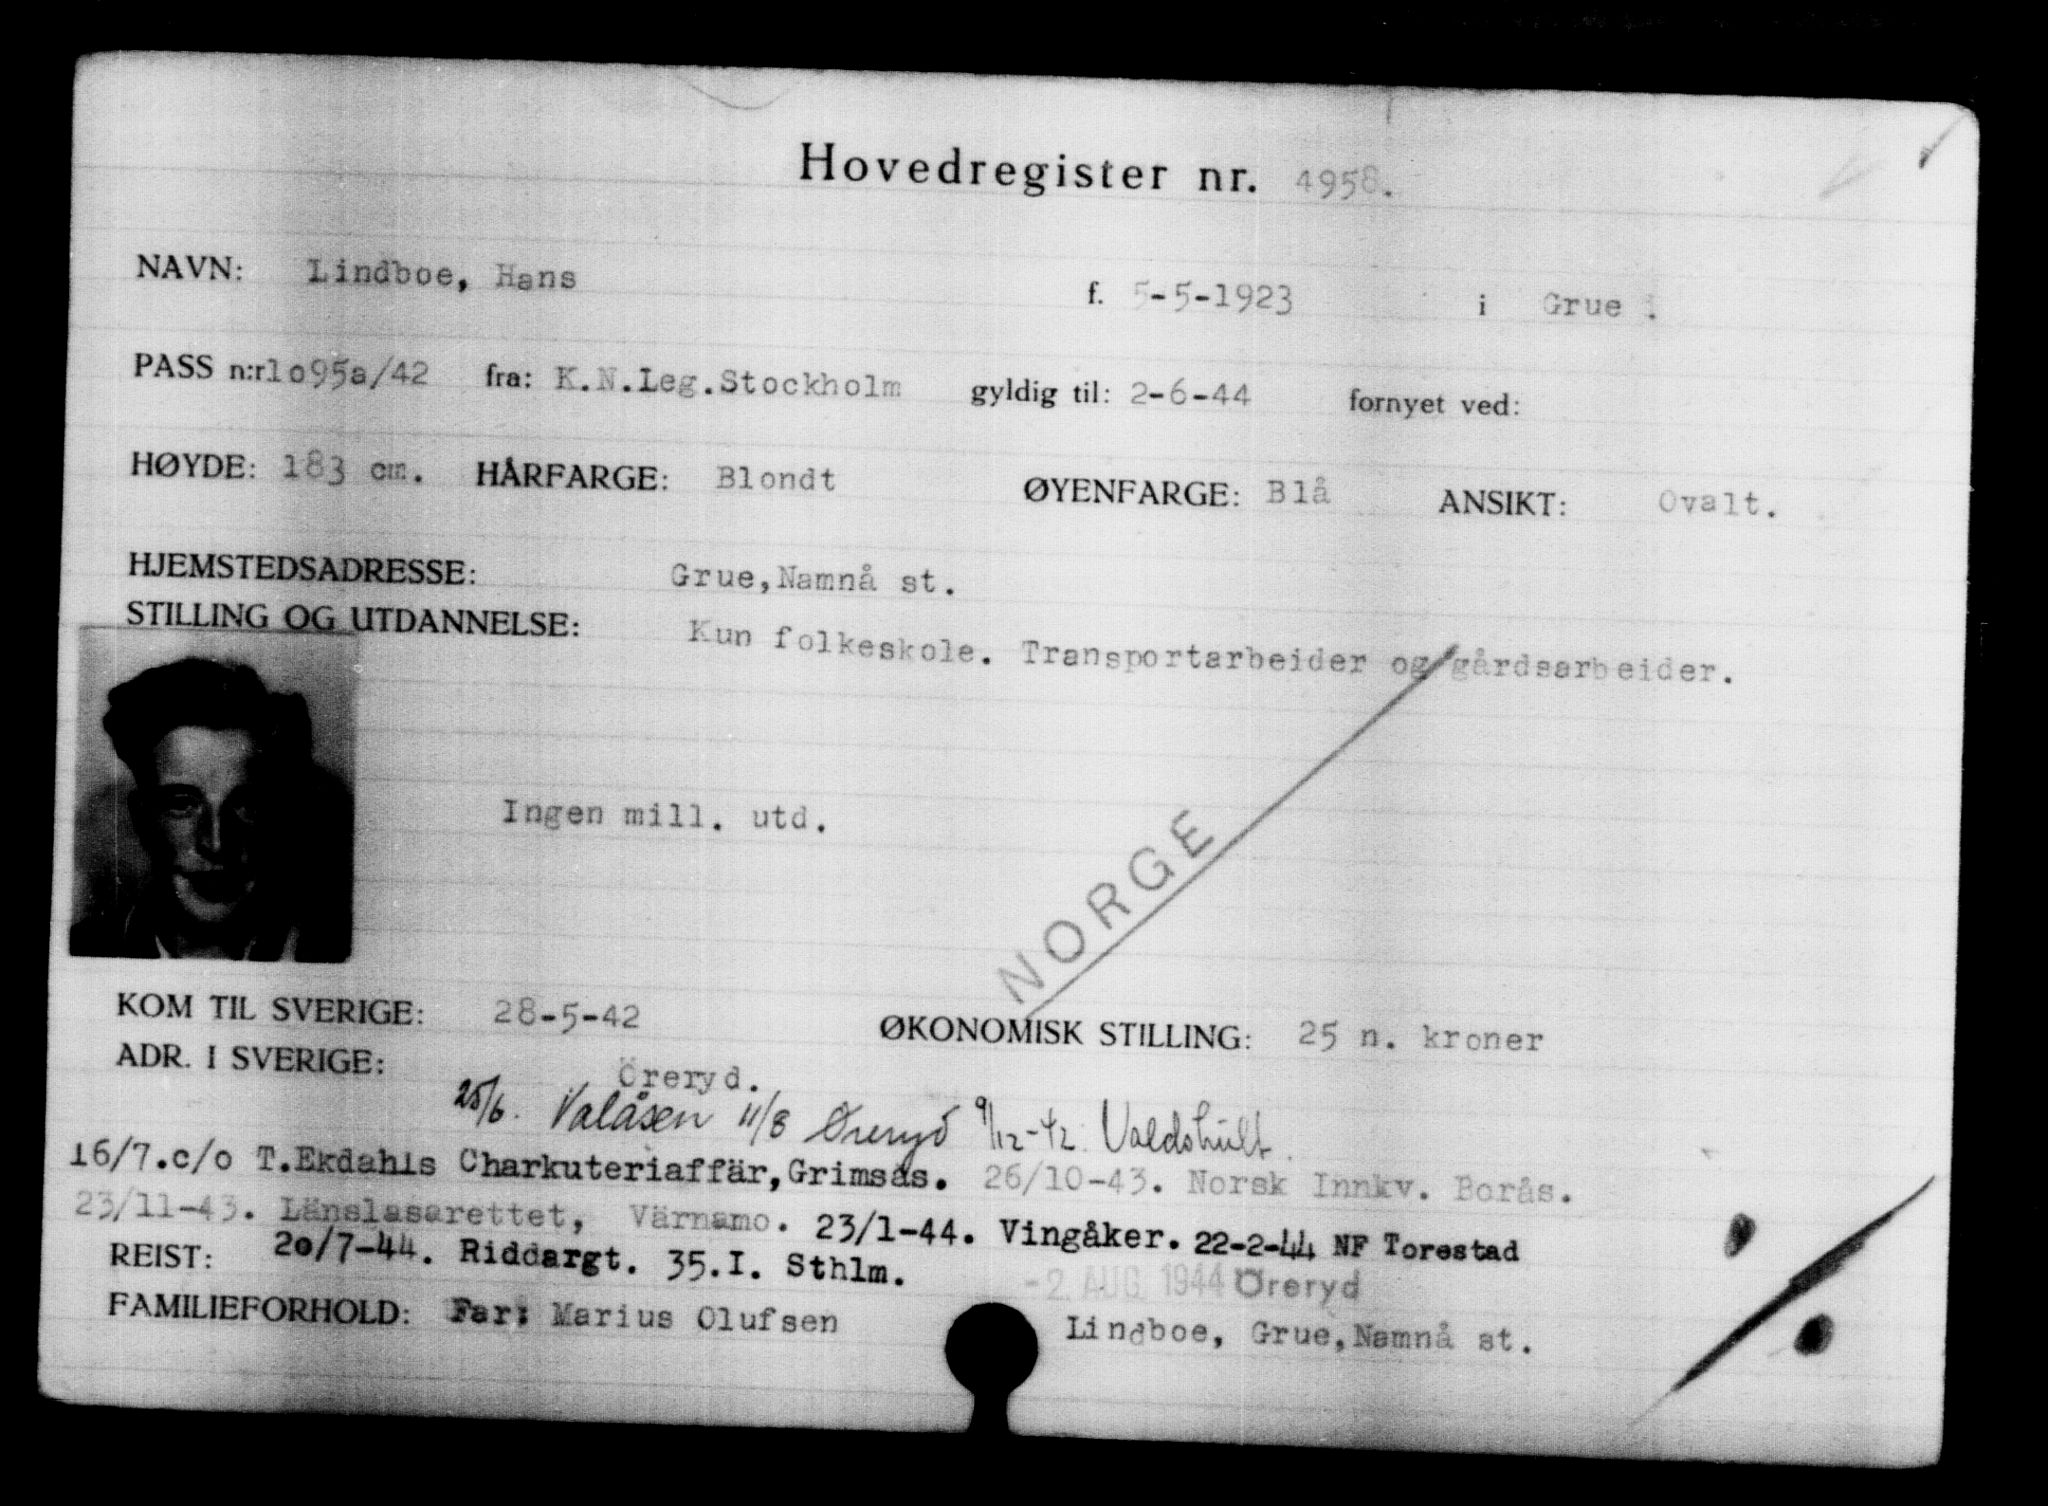 Hovedregister nr. 4958.
NAVN: Lindboe, Hans f. 5-5-1923 i Grue .
PASS n:r 1o95a/42 fra: K.N.Leg.Stockholm gyldig til: 2-6-44 fornyet ved:
HØYDE: 183 cm. HÅRFARGE: Blondt ØYENFARGE: Blå ANSIKT: Ovalt.
HJEMSTEDSADRESSE: Grue,Namnå st.
STILLING OG UTDANNELSE: Kun folkeskole. Transportarbeider og gårdsarbeider.
Ingen mill. utd.
NORGE
KOM TIL SVERIGE: 28-5-42 ØKONOMISK STILLING: 25 n. kroner
ADR. I SVERIGE: Öreryd.
25/6. Valåsen 11/8 Øreryd 9/12-42 Valdshult.
16/7.c/o T.Ekdahls Charkuteriaffär,Grimsås. 26/10-43. Norsk Innkv. Borås.
23/11-43. Länslasarettet, Värnamo. 23/1-44. Vingåker. 22-2-44 NF Torestad
REIST: 20/7-44. Riddargt. 35.I. Sthlm. -2. AUG. 1944 Öreryd
FAMILIEFORHOLD: Far: Marius Olufsen Lindboe, Grue,Namnå st.